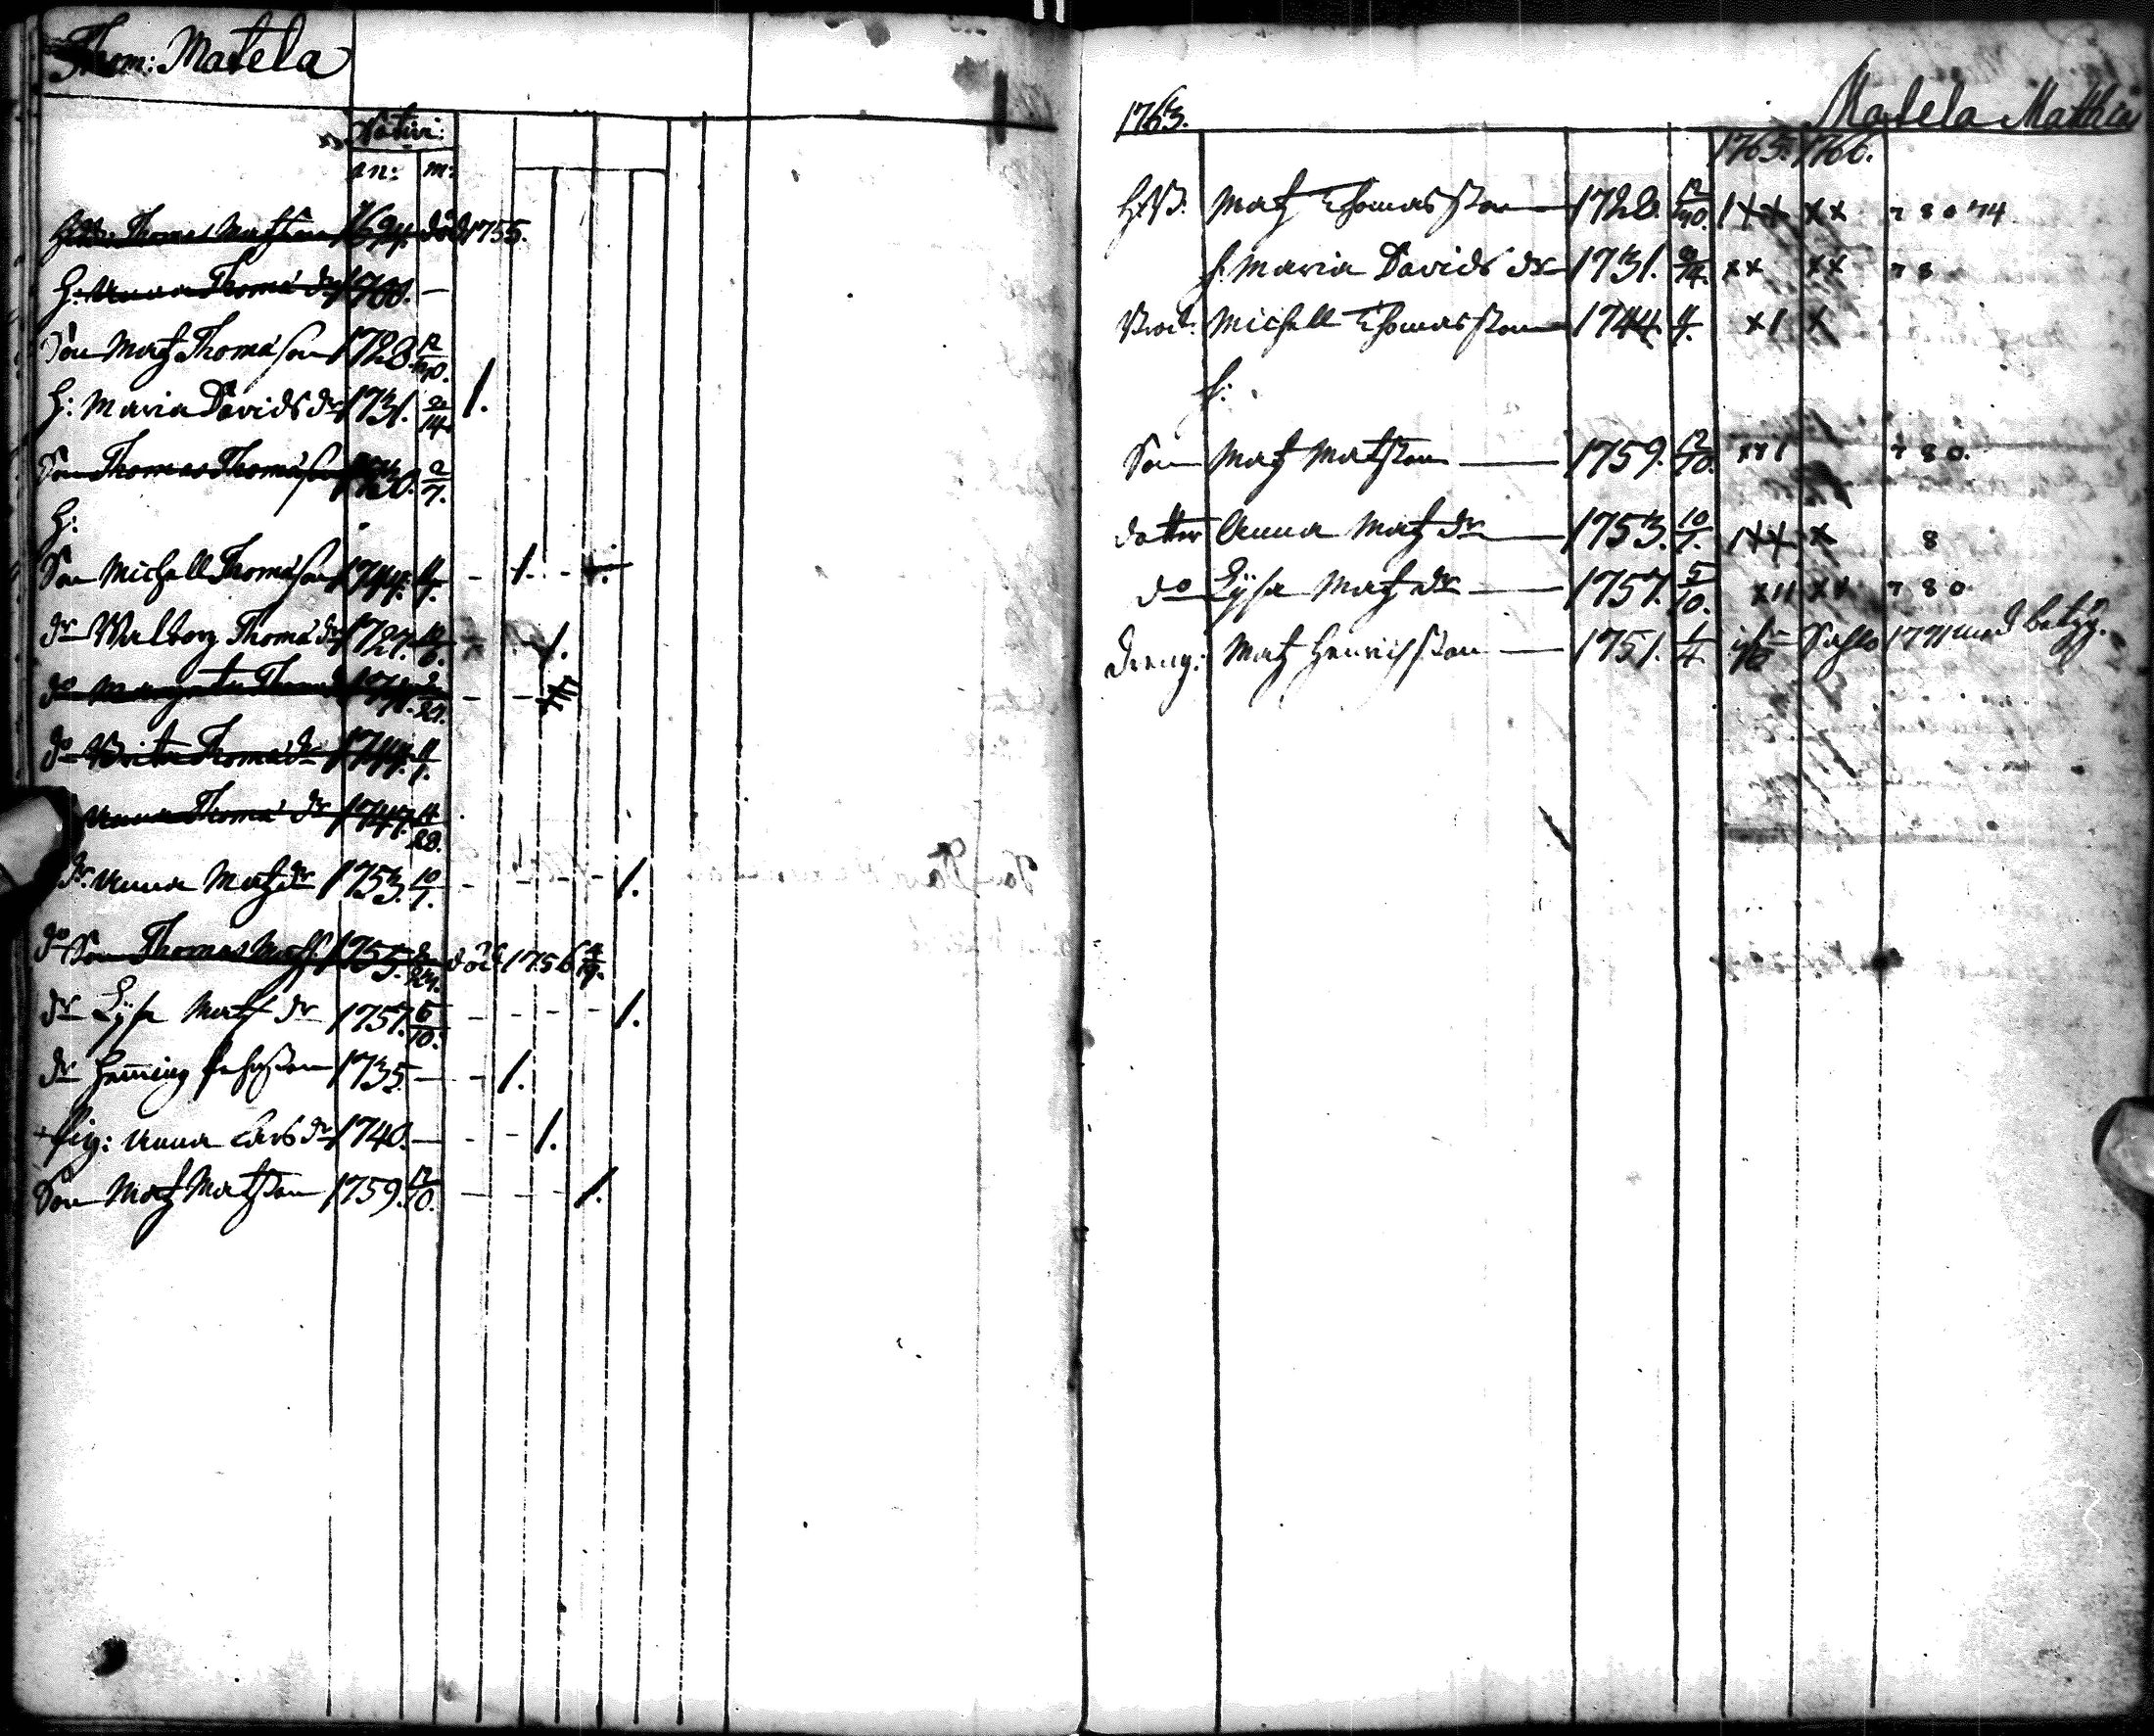 Thom: Matela
Nativi:
an: m:
Thomas Matsson 1694. död 1755.
H: Anna Thomæ dr 1700. —
Son Matz Thomason 1728. 12/20.
H: Maria Davids dr 1731. 2/14. 1.
Son Thomas Thomason 2/7.
H:
Son Michell Thomason 1744. 4/7. - 1. -
dr Walborg Thoma dr 1727. - - 1.
do Margeta Thoma - -
do Brita Thoma dr 1744.
Anna Thoma dr 1747. 4/28.
dr Anna Matz dr 1753. 10/7. - - - - 1.
do Son Thomas Mats. 1755. död 1756 4/19.
dr Lysa Matz dr 1757. 5/10. - - - - 1.
dr Henning 1735 — - 1.
+ Pig: Anna Lars dr 1740. — - - 1.
Son Matz Matsson 1759. 12/10. - - - 1.
1763.
Matela Matthia
1765. 1766.
HB. Matz Thomasson — 1728. 12/20. 1 x x x x 7 8 0 74.
h. Maria Davids dr — 1731. 2/14. x x x x 7 8
Brod: Michell Thomasson — 1744. 4/7. x 1 x
h:
Son Matz Matsson — 1759. 12/10. x x 1 7 8 0.
dotter Anna Matz dr — 1753. 10/7. 1 x x x 8
do Lysa Matz dr — 1757. 5/10. x 1 1 x x 7 8 0
dreng: Matz Henrichsson — 1751. 1/4. 1771 med betyg.